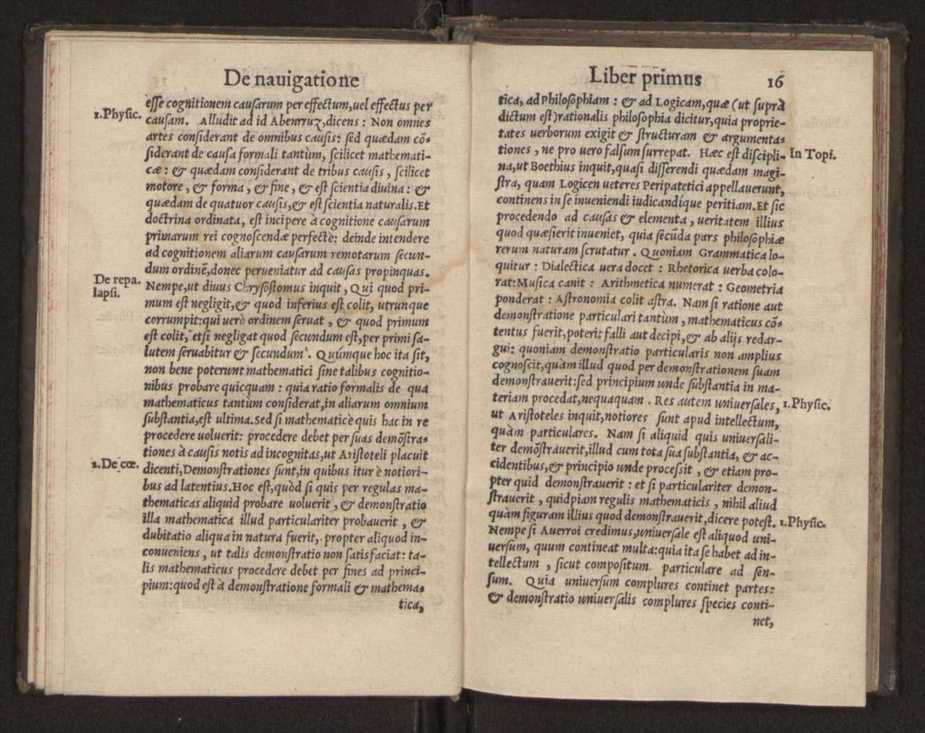 De nauigatione
esse cognitionem causarum per effectum,uel effectus per
1.Physic. causam. Alludit ad id Abenrruz,dicens : Non omnes
artes considerant de omnibus causis: sed quædam cõ-
siderant de causa formali tantùm, scilicet mathemati-
cæ : & quædam considerant de tribus causis , scilicet
motore , & forma , & fine , & est scientia diuina : &
quædam de quatuor causis,& est scientia naturalis.Et
doctrina ordinata, est incipere à cognitione causarum
primarum rei cognoscendæ perfectè: deinde intendere
ad cognitionem aliarum causarum remotarum secun-
dum ordinẽ,donec perueniatur ad causas propinquas.
De repa. Nempe,ut diuus Chrysostomus inquit , Qui quod pri-
lapsi. mum est negligit,& quod inferius est colit, utrunque
corrumpit:qui uerò ordinem seruat , & quod primum
est colit, etsi negligat quod secundum est,per primi sa-
lutem seruabitur & secundum. Quũmque hoc ita sit,
non bene poterunt mathematici sine talibus cognitio-
nibus probare quicquam : quia ratio formalis de qua
mathematicus tantùm considerat,in aliarum omnium
substantia,est ultima.Sed si mathematicè quis hac in re
procedere uoluerit: procedere debet per suas demõstra-
tiones à causis notis ad incognitas,ut Aristoteli placuit
2.De cœ. dicenti,Demonstrationes sunt,in quibus itur è notiori-
bus ad latentius.Hoc est,quòd si quis per regulas ma-
thematicas aliquid probare uoluerit , & demonstratio
illa mathematica illud particulariter probauerit , &
dubitatio aliqua in natura fuerit, propter aliquod in-
conueniens , ut talis demonstratio non satisfaciat: ta-
lis mathematicus procedere debet per fines ad princi-
pium:quod est à demonstratione formali & mathema-
tica,
Liber primus 16
tica, ad Philosophiam : & ad Logicam,quæ (ut suprà
dictum est)rationalis philosophia dicitur,quia proprie-
tates uerborum exigit & structuram & argumenta-
tiones , ne pro uero falsum surrepat. Hæc est discipli- In Topi.
na,ut Boethius inquit,quasi disserendi quædam magi-
stra, quam Logicen ueteres Peripatetici appellauerunt,
continens in se inueniendi iudicandique peritiam.Et sic
procedendo ad causas & elementa , ueritatem illius
quod quæsierit inueniet, quia secũda pars philosophiæ
rerum naturam scrutatur . Quoniam Grammatica lo-
quitur : Dialectica uera docet : Rhetorica uerba colo-
rat:Musica canit : Arithmetica numerat : Geometria
ponderat : Astronomia colit astra. Nam si ratione aut
demonstratione particulari tantùm , mathematicus cõ-
tentus fuerit,poterit falli aut decipi,& ab alijs redar-
gui: quoniam demonstratio particularis non amplius
cognoscit,quàm illud quod per demonstrationem suam
demonstrauerit:sed principium unde substantia in ma-
teriam procedat,nequaquam . Res autem uniuersales, 1.Physic.
ut Aristoteles inquit,notiores sunt apud intellectum,
quàm particulares. Nam si aliquid quis uniuersali-
ter demõstrauerit,illud cum tota sua substantia, & ac-
cidentibus,& principio unde processit , & etiam pro-
pter quid demonstrauerit : et si particulariter demon-
strauerit , quidpiam regulis mathematicis , nihil aliud
quàm figuram illius quod demonstrauerit,dicere potest. 1.Physic.
Nempe si Auerroi credimus,uniuersale est aliquod uni-
uersum, quum contineat multa:quia ita se habet ad in-
tellectum , sicut compositum particulare ad sen-
sum. Quia uniuersum complures continet partes:
& demonstratio uniuersalis complures species conti-
net,